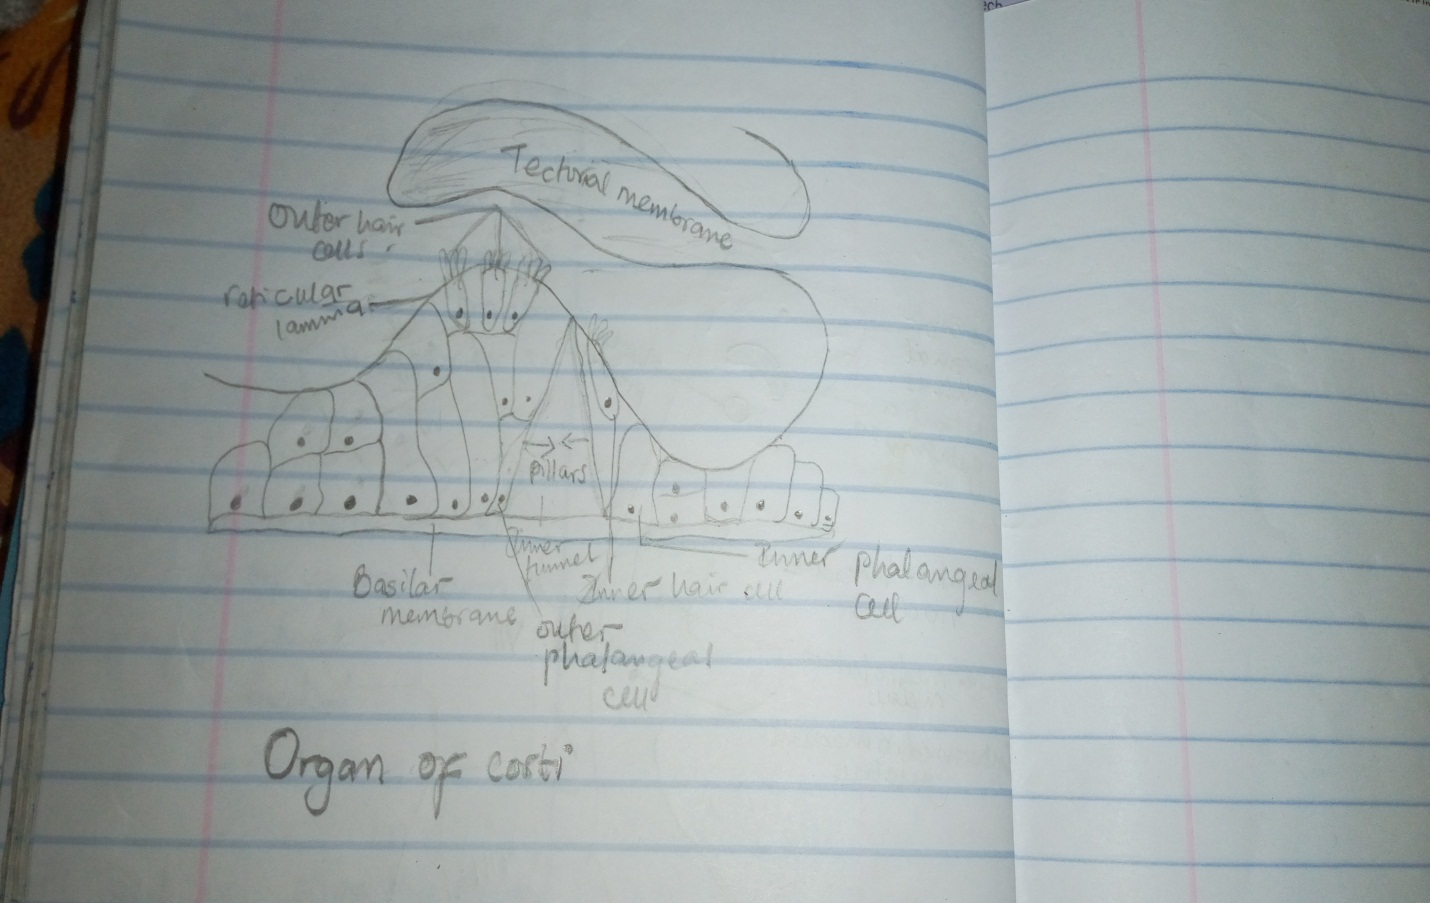 Tectorial membrane
Outer hair
cells
reticular
lamina
pillars
Inner
tunnel
Basilar
membrane
Inner hair cell
Inner phalangeal
cell
outer
phalangeal
cell
Organ of corti